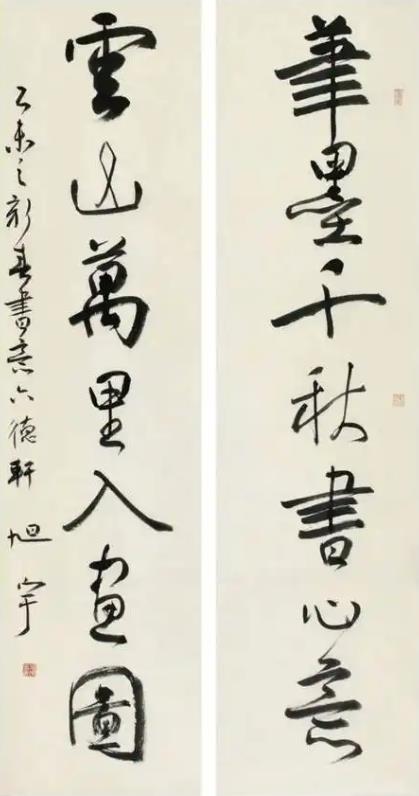 筆墨千秋書心意
雲山萬里入畫圖
乙未之新春書於六德軒 旭宇